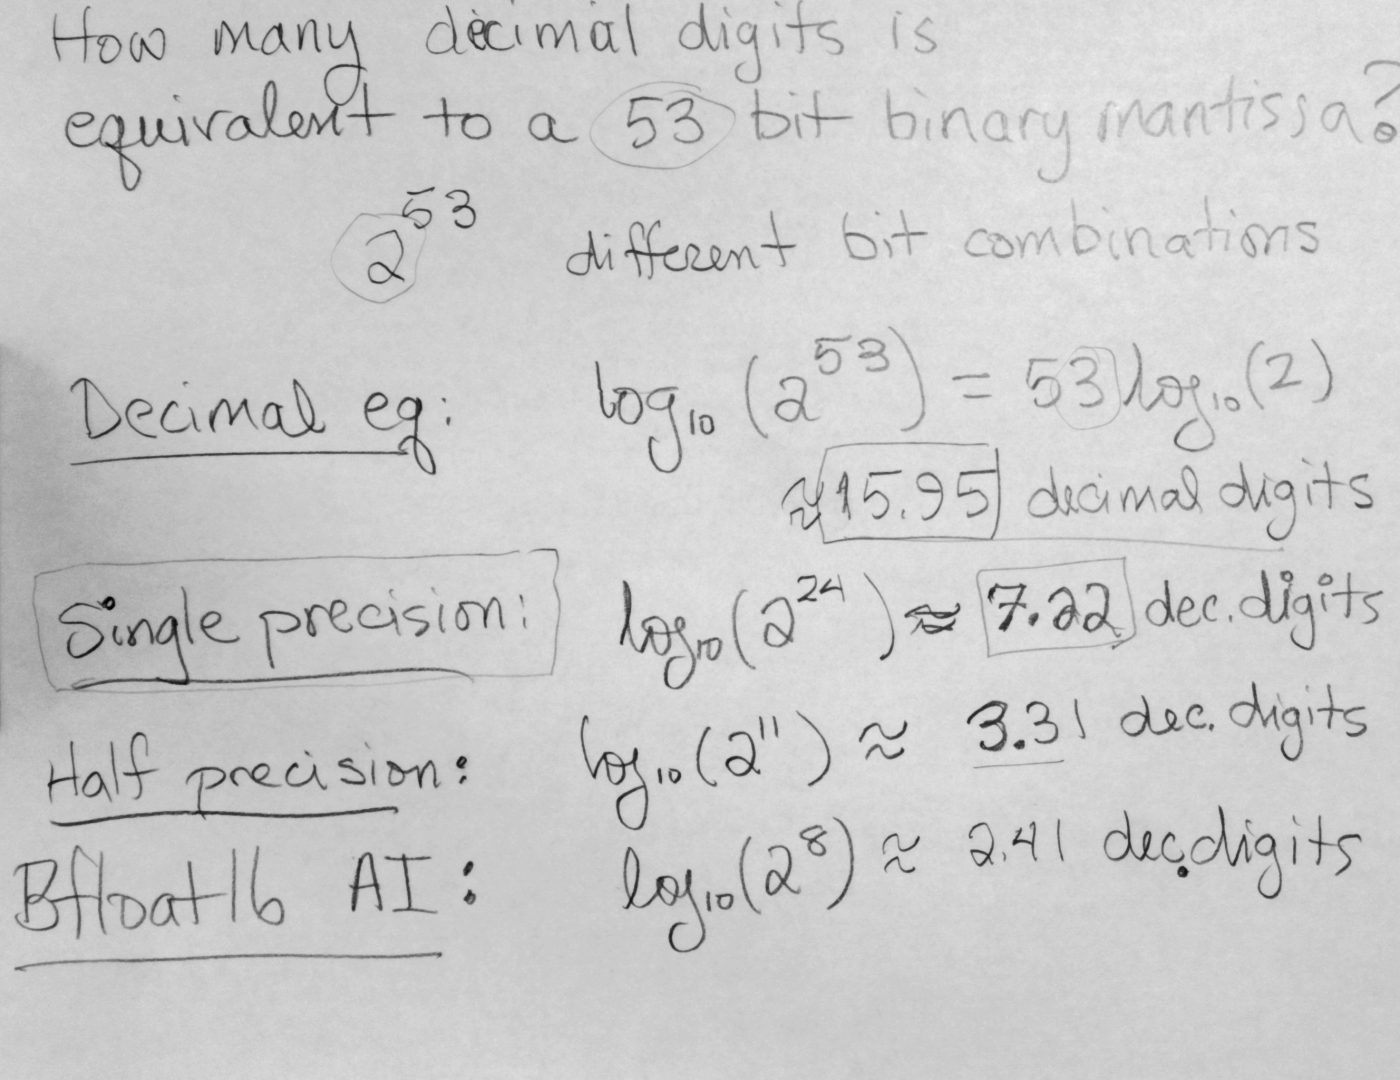 How many decimal digits is
equivalent to a 53 bit binary mantissa?
2⁵³ different bit combinations
Decimal eq: log₁₀ (2⁵³) = 53 log₁₀ (2)
≈ 15.95 decimal digits
Single precision: log₁₀ (2²⁴) ≈ 7.22 dec. digits
Half precision: log₁₀ (2¹¹) ≈ 3.31 dec. digits
Bfloat16 AI: log₁₀ (2⁸) ≈ 2.41 dec. digits